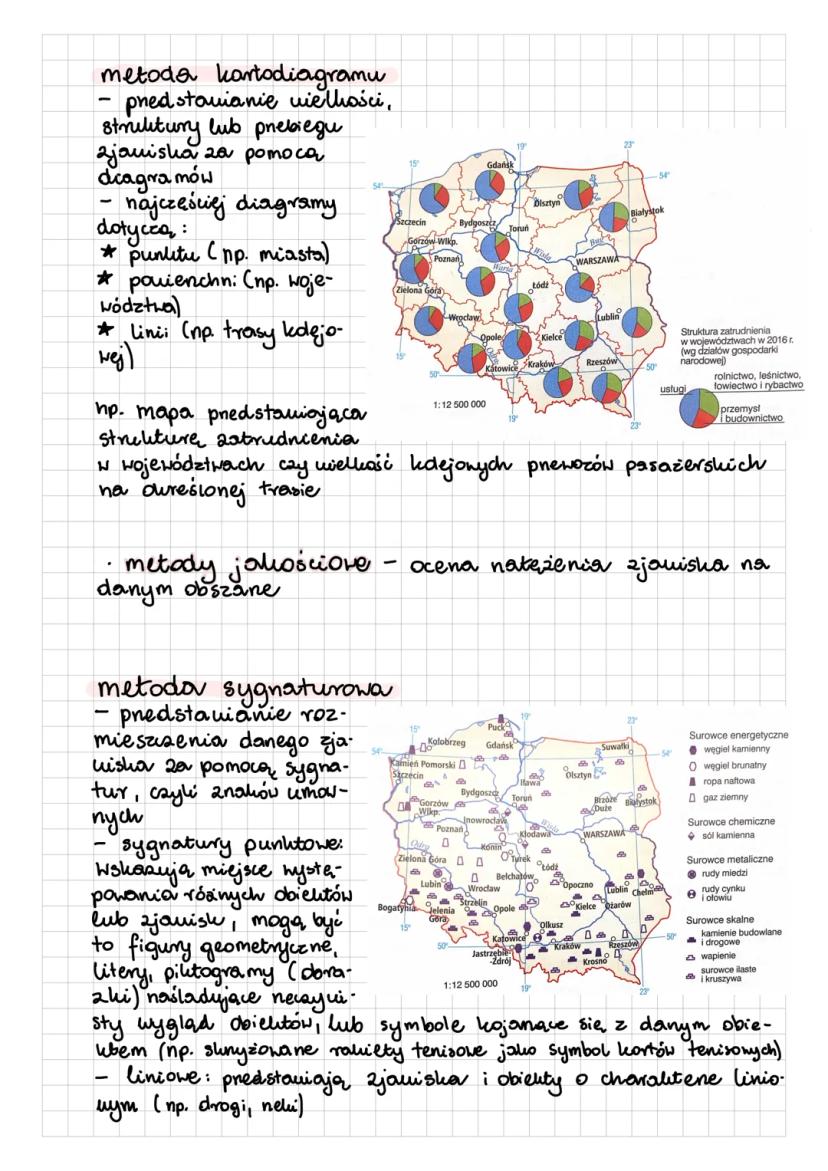 metoda kartodiagramu
- przedstawianie wielkości,
struktury lub przebiegu
zjawiska za pomocą
diagramów
- najczęściej diagramy
dotyczą:
★ punktu (np. miasta)
★ powierzchni (np. woje-
wództwa)
★ linii (np. trasy kolejo-
wej)
np. mapa przedstawiająca
strukturę zatrudnienia
w województwach czy wielkość kolejowych przewozów pasażerskich
na określonej trasie
15°
19°
23°
54°
54°
Gdańsk
Olsztyn
Białystok
Szczecin
Bydgoszcz
Toruń
Gorzów Wlkp.
Poznań
Warta
Wisła
Bug
WARSZAWA
Zielona Góra
Łódź
Wrocław
Lublin
Opole
Odra
Kielce
Katowice
Kraków
Rzeszów
15°
50°
50°
19°
23°
1:12 500 000
Struktura zatrudnienia
w województwach w 2016 r.
(wg działów gospodarki
narodowej)
rolnictwo, leśnictwo,
łowiectwo i rybactwo
usługi
przemysł
i budownictwo
· metody jakościowe - ocena natężenia zjawiska na
danym obszarze
metoda sygnaturowa
- przedstawianie roz-
mieszczenia danego zja-
wiska za pomocą sygna-
tur, czyli znaków umow-
nych
- sygnatury punktowe:
wskazują miejsce wystę-
powania różnych obiektów
lub zjawisk, mogą być
to figury geometryczne,
litery, piktogramy (obra-
zki) naśladujące rzeczywi-
sty wygląd obiektów, lub symbole kojarzące się z danym obie-
ktem (np. skrzyżowane rakiety tenisowe jako symbol kortów tenisowych)
- liniowe: przedstawiają zjawiska i obiekty o charakterze linio-
wym (np. drogi, rzeki)
19°
23°
54°
54°
Puck
Kołobrzeg
Gdańsk
Suwałki
Kamień Pomorski
Szczecin
Iława
Olsztyn
Bydgoszcz
Toruń
Brzozie Duże
Białystok
Gorzów
Wlkp.
Inowrocław
Poznań
Kłodawa
Wisła
WARSZAWA
Odra
Konin
Zielona Góra
Turek
Łódź
Bełchatów
Lubin
Wrocław
Opoczno
Lublin
Chełm
Bogatynia
Strzelin
Jelenia
Góra
Opole
Kielce
Ożarów
Olkusz
15°
50°
50°
Katowice
Kraków
Rzeszów
Jastrzębie-
-Zdrój
Krosno
1:12 500 000
19°
23°
Surowce energetyczne
węgiel kamienny
węgiel brunatny
ropa naftowa
gaz ziemny
Surowce chemiczne
sól kamienna
Surowce metaliczne
rudy miedzi
rudy cynku
i ołowiu
Surowce skalne
kamienie budowlane
i drogowe
wapienie
surowce ilaste
i kruszywa